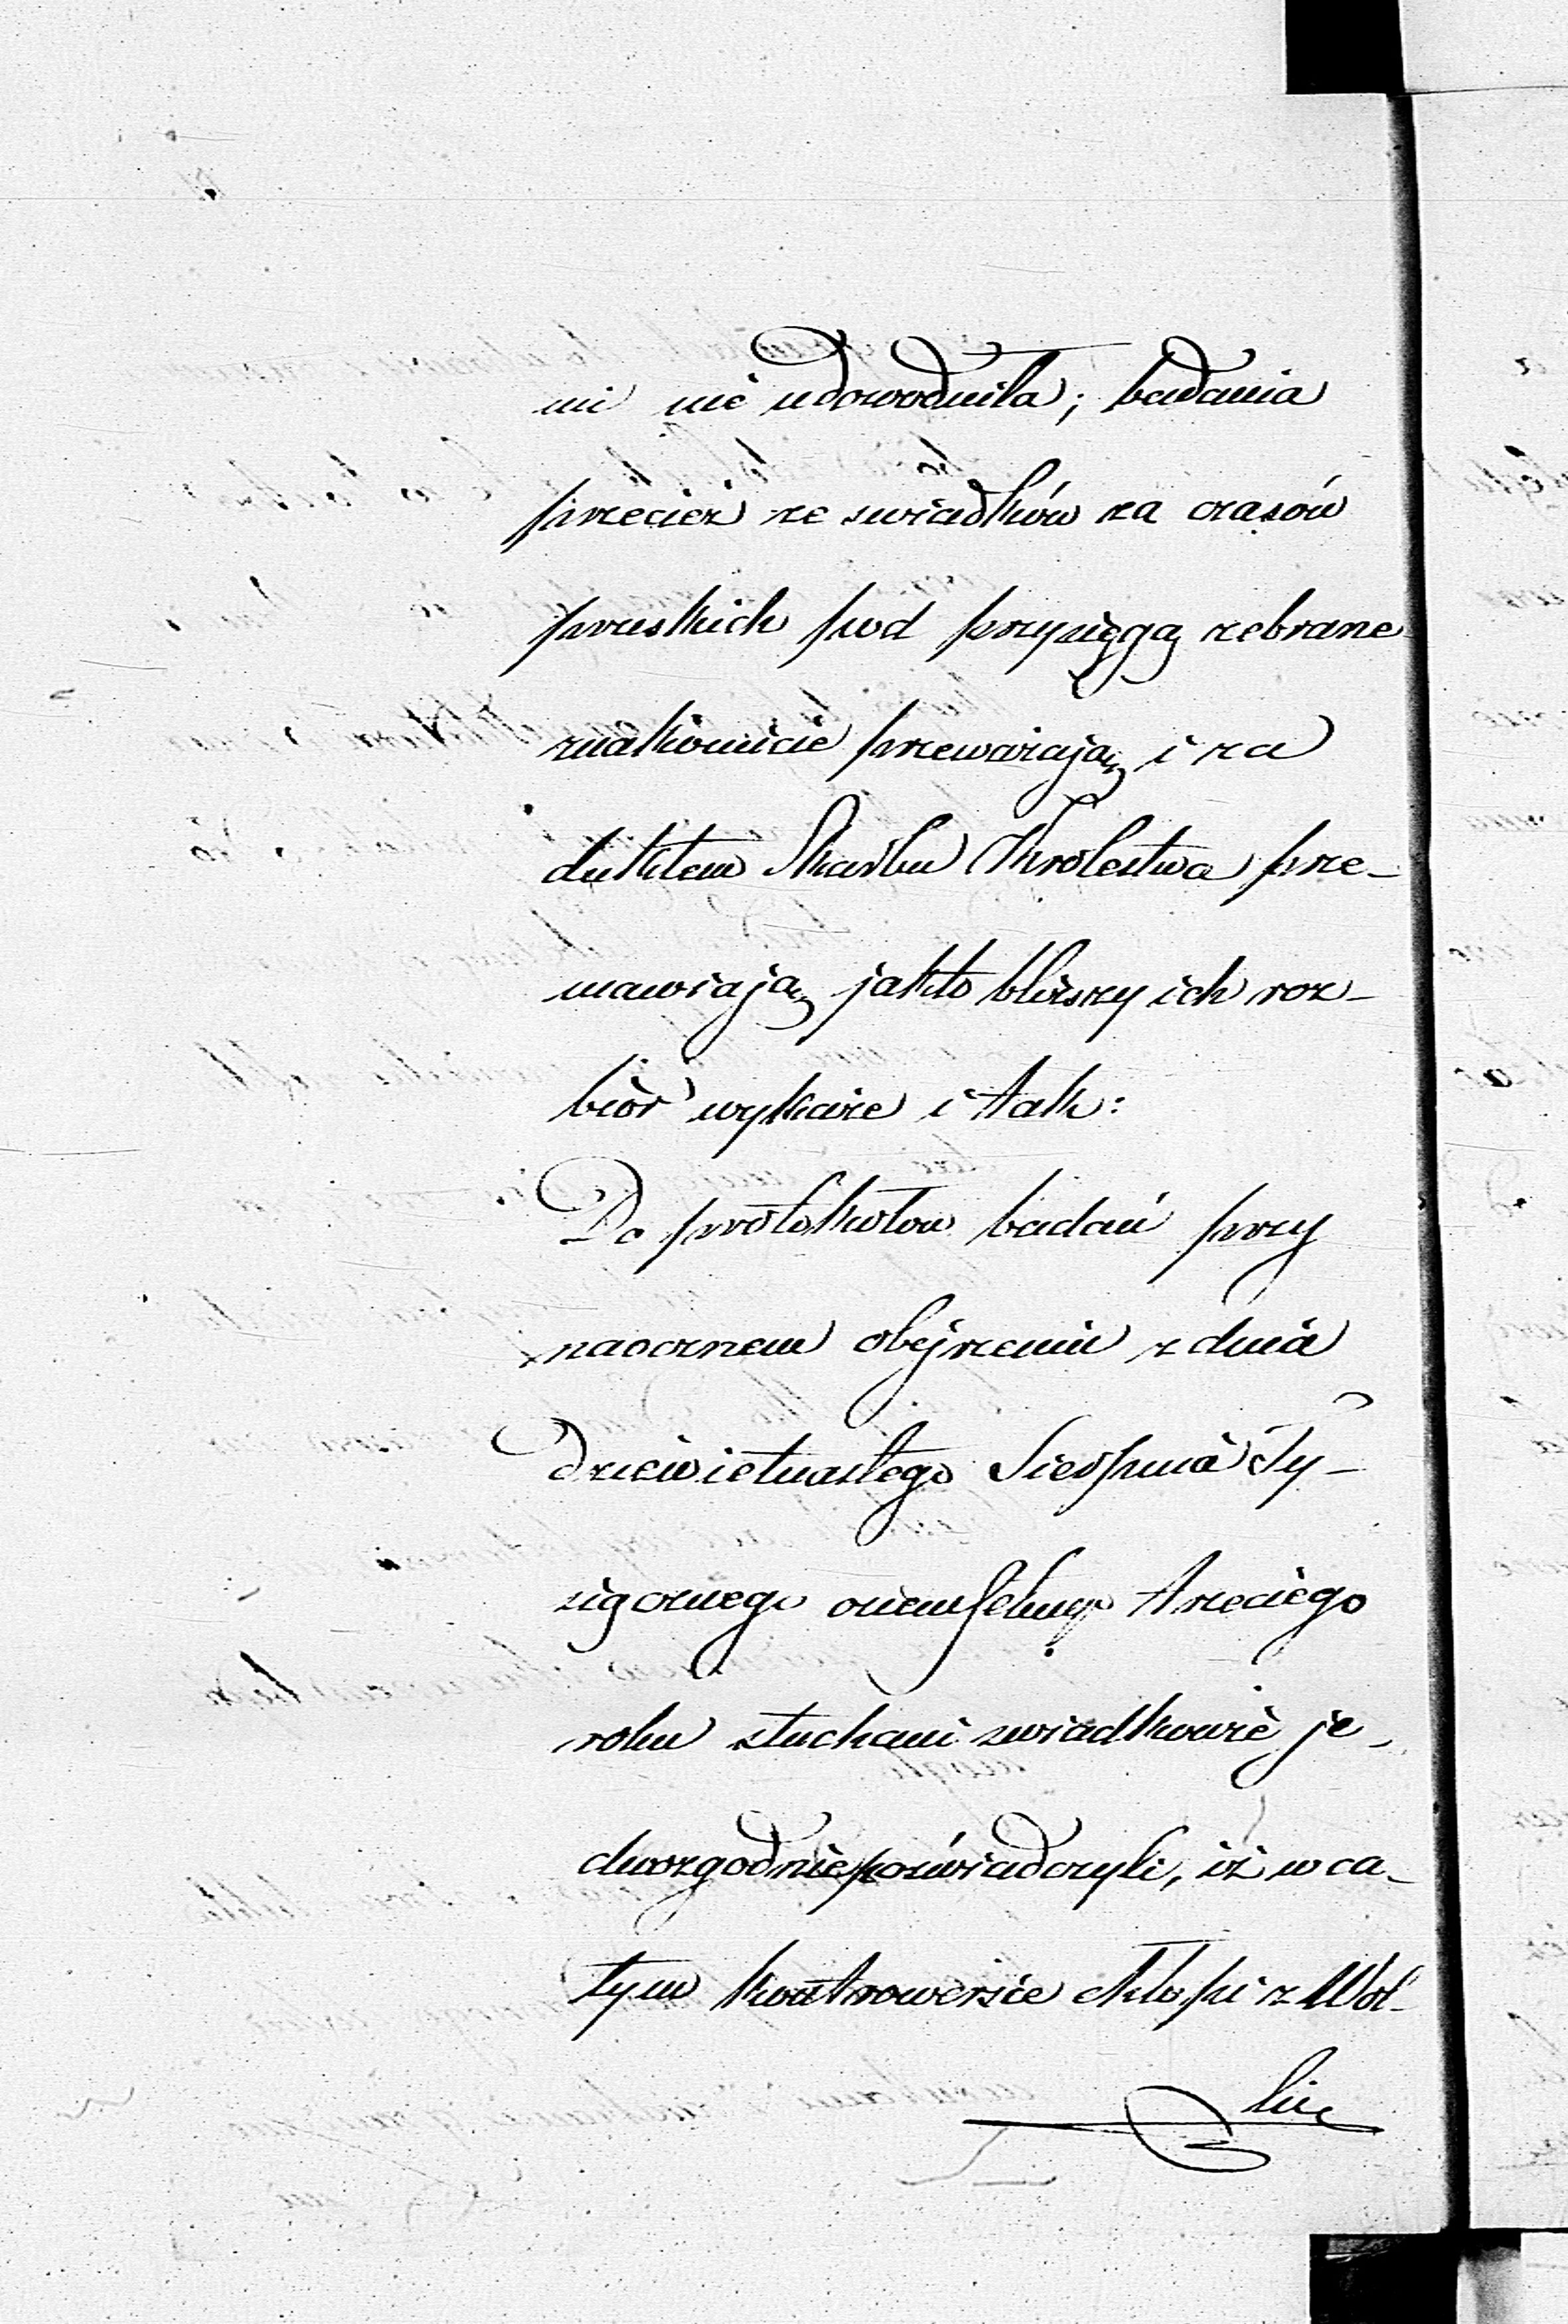 ni nie udowodniła; badania
przecież ze swiadków za czasów
pruskich pod przysięgą zebrane
znakomicie przeważają i za
duktem Skarbu Krolestwa prze-
mawiają jakto bliższy ich roz-
biór wykaże i tak:
Do protokołow badań przy
naocznem obejrzeniu z dnia
Dziewietnastego Sierpnia Ty-
siącznego ośiemsetnego trzeciego
roku słuchani swiadkowie je-
dnozgodnie poświadczyli, iż w ca-
łym kontrowersie chłopi z Wol-
lice